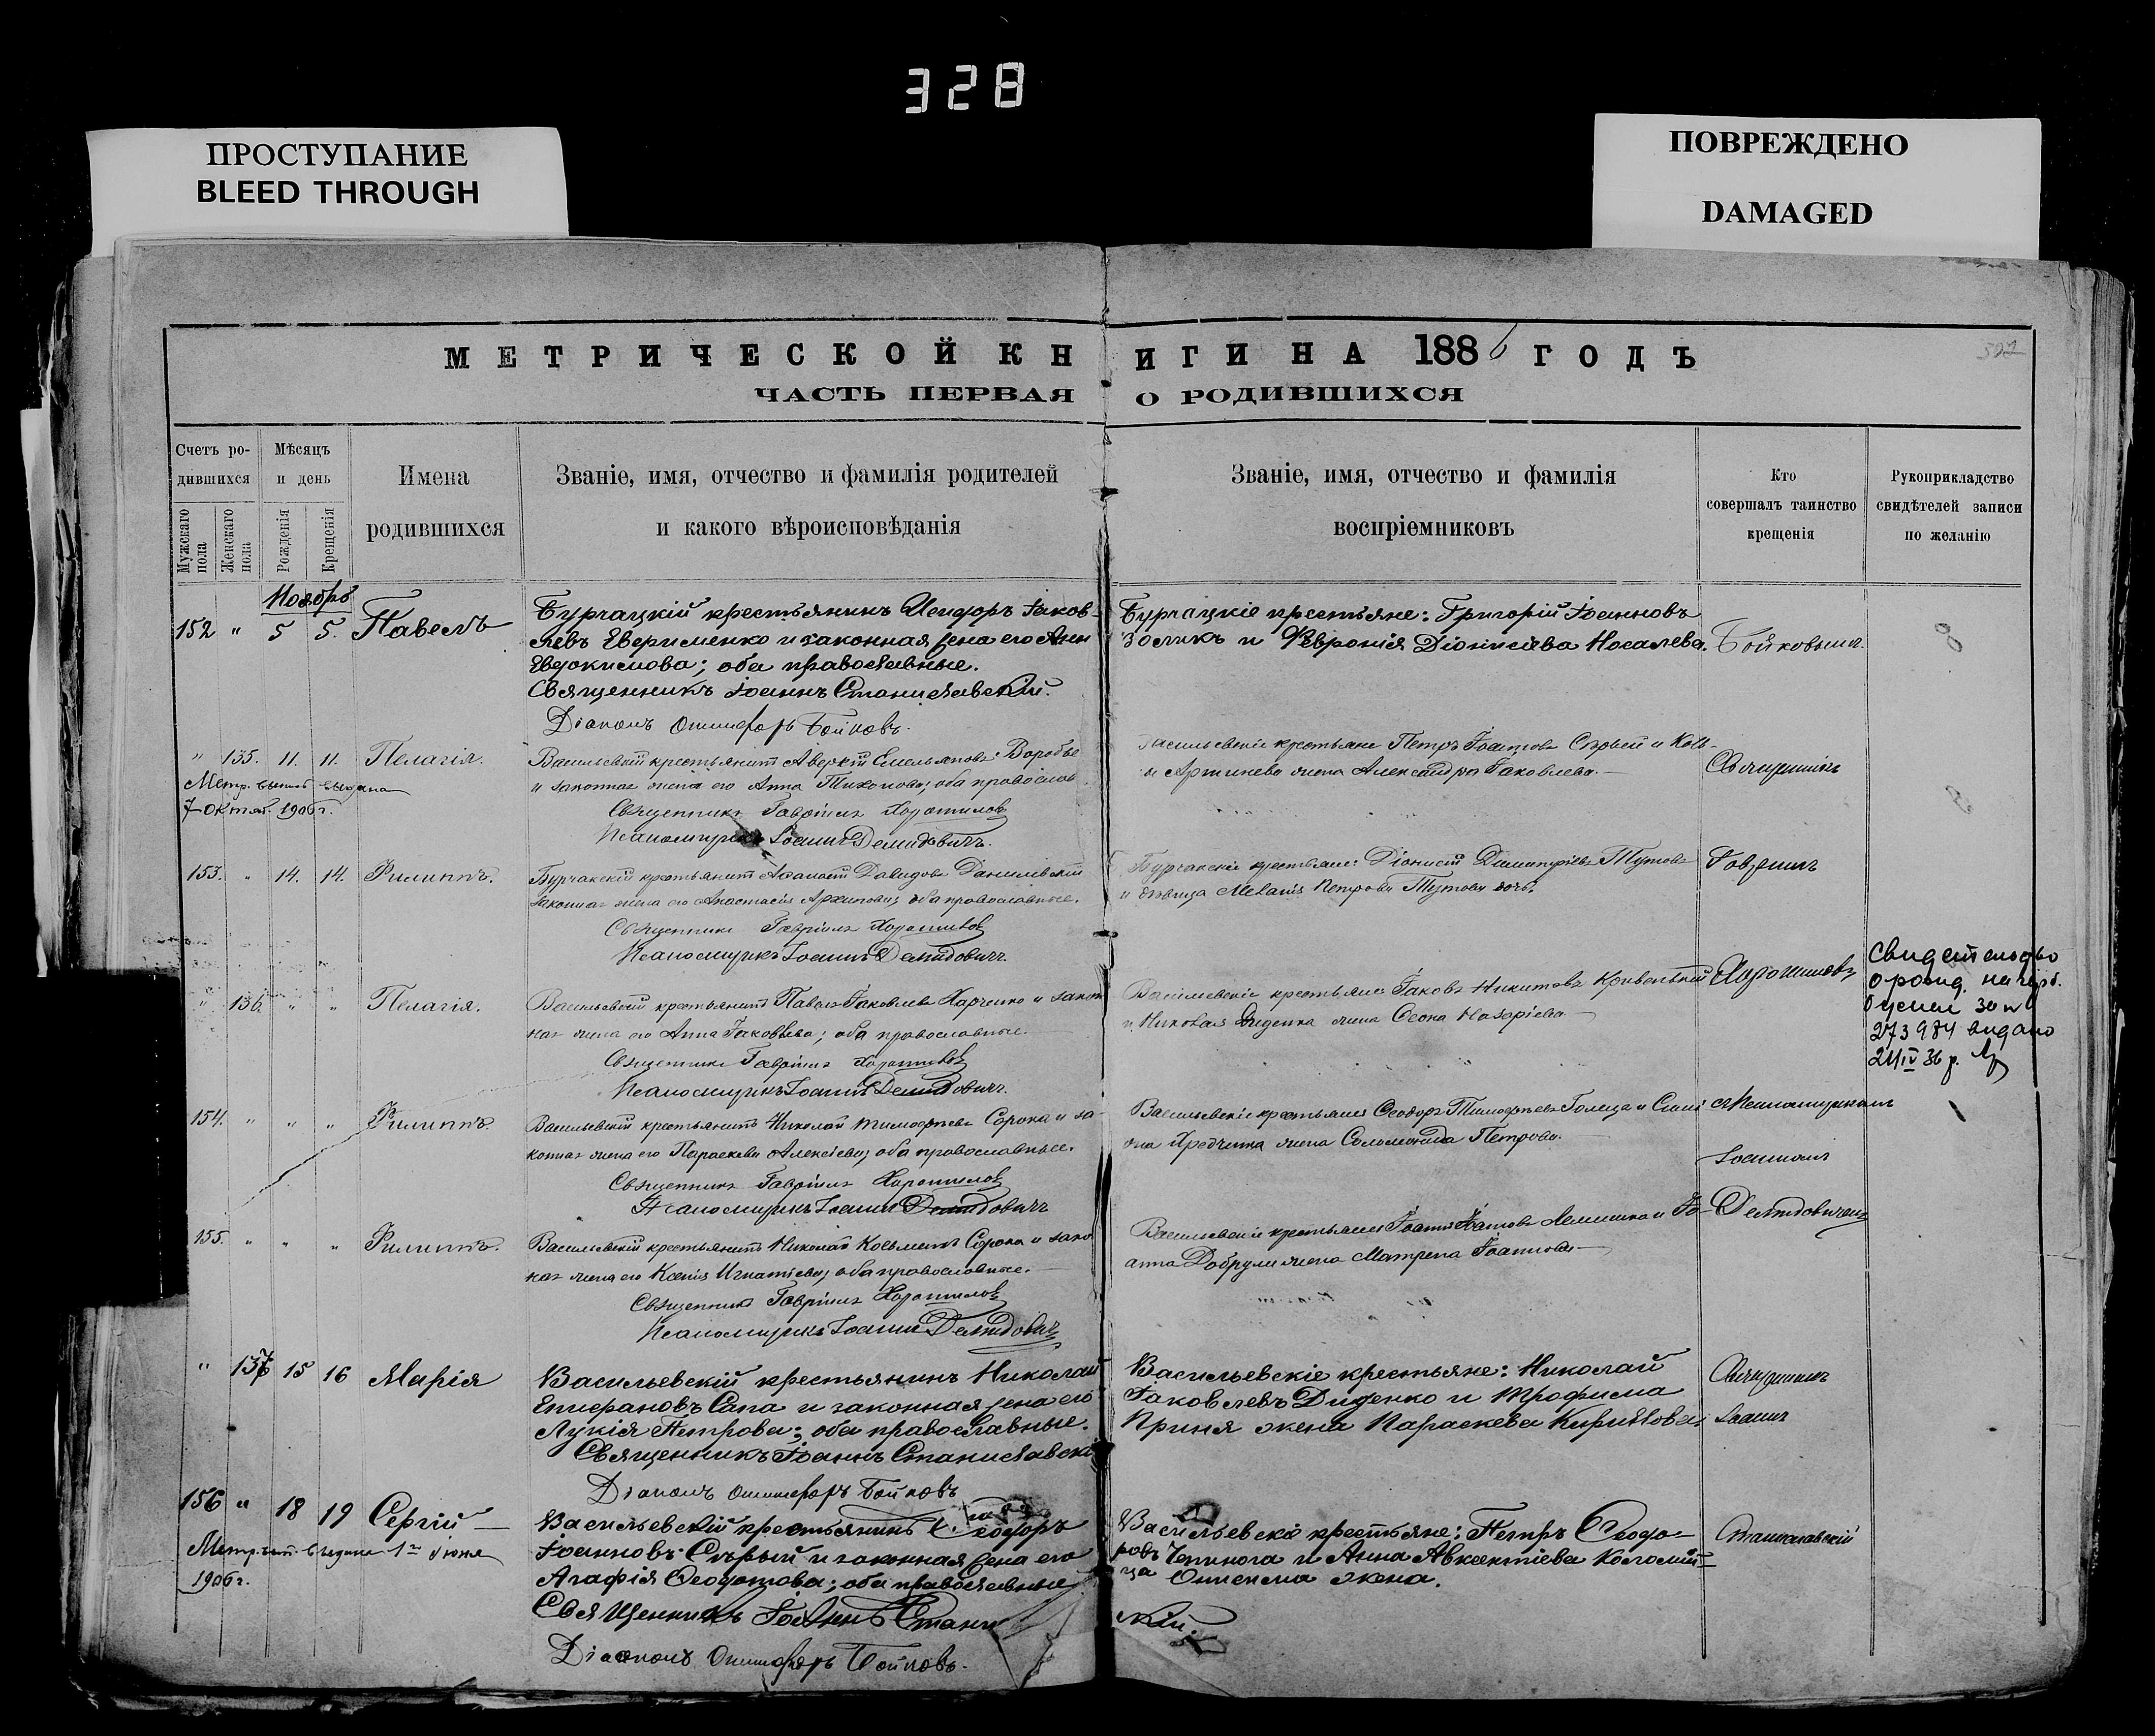 328
ПРОСТУПАНИЕ
BLEED THROUGH
ПОВРЕЖДЕНО
DAMAGED
МЕТРИЧЕСКОЙ КНИГИ НА 1886 ГОДЪ
ЧАСТЬ ПЕРВАЯ О РОДИВШИХСЯ
Счетъ ро-
дившихся
Мужскаго пола
Женскаго пола
Мѣсяцъ
и день
Рожденія
Крещенія
Имена
родившихся
Званіе, имя, отчество и фамилія родителей
и какого вѣроисповѣданія
Званіе, имя, отчество и фамилія
воспріемниковъ
Кто
совершалъ таинство
крещенія
Рукоприкладство
свидѣтелей записи
по желанію
Ноябрь
152 " 5 5. Павелъ
Бурчацкій крестьянинъ Исидоръ Іаков-
левъ Еверименко и законная жена его Анн
Евдокимова; оба православные.
Священникъ Іоаннъ Станиславскій.
Діаконъ Онисифоръ Бойковъ.
Бурчацкіе крестьяне: Григорій Іоанновъ
Зосликъ и Февронія Діонисіева Носалева.
Бойковымъ.
" 135. 11. 11. Пелагія.
Метр. выпись выдана
7 Октяб. 1906 г.
Васильевскій крестьянинъ Аверкій Емельяновъ Воробье
и законная жена его Анна Тихонова; оба православ
Священникъ Гавріилъ Хорошиловъ
Псаломщикъ Іоаннъ Демидовичъ.
Васильевскіе крестьяне Петръ Іоанновъ Сѣрый и Козь-
мы Артинева жена Александра Іаковлева.
Священникъ
153. " 14. 14. Филиппъ.
Бурчакскій крестьянинъ Аѳанасій Давидовъ Данилевскій
законная жена его Анастасія Архипова; оба православные.
Священникъ Гавріилъ Хорошиловъ
Псаломщикъ Іоаннъ Демидовичъ.
Бурчакскіе крестьяне: Діонисій Димитріевъ Тутовъ
и дѣвица Меланія Петрова Тутова дочь.
Гавріилъ
" 136. " " Пелагія.
Васильевскій крестьянинъ Павелъ Іаковлевъ Харченко и закон
ная жена его Анна Іаковлева; оба православные.
Священникъ Гавріилъ Хорошиловъ
Псаломщикъ Іоаннъ Демидовичъ.
Васильевскіе крестьяне Іаковъ Никитовъ Кривенькій
и Николая Диденка жена Ѳеона Назаріева
Хорошиловъ
273984 видано
154. " " " Филиппъ.
Васильевскій крестьянинъ Николай Тимофеевъ Сорока и за-
конная жена его Параскева Алексіева; оба православные.
Священникъ Гавріилъ Хорошиловъ
Псаломщикъ Іоаннъ Демидовичъ
Васильевскіе крестьяне Ѳеодоръ Тимофѣевъ Голица и Сими
она Хредченка жена Соломонида Петрова.
съ Псаломщикомъ
Іоанномъ
155. " " " Филиппъ.
Васильевскій крестьянинъ Николай Козьминъ Сорока и закон
ная жена его Ксенія Игнатіева; оба православные.
Священникъ Гавріилъ Хорошиловъ
Псаломщикъ Іоаннъ Демидовичъ
Васильевскіе крестьяне Іоаннъ Лемишка и Іо-
анна Добрули жена Матрена Іоаннова
Демидовичемъ
" 137 15 16 Марія
Васильевскій крестьянинъ Николай
Епифановъ Сапа и законная жена его
Лукія Петрова; оба православные.
Священникъ Іоаннъ Станиславскі
Діаконъ Онисифоръ Бойковъ
Васильевскіе крестьяне: Николай
Іаковлевъ Диденко и Трофима
Приня жена Параскева Кириллова
Священникъ
Іоаннъ
156 " 18 19 Сергій
Метр. вып. выдана 1го Іюня
1906 г.
Васильевскій крестьянинъ Ѳеодоръ
Іоанновъ Сѣрый и законная жена его
Агафія Ѳеодотова; оба православные
Священникъ Іоаннъ Стани
Діаконъ Онисифоръ Бойковъ.
Васильевскіе крестьяне: Петръ Ѳеодо-
ровъ Чепинога и Анна Авксентіева Коломій-
ца Онисима жена.
скій.
Станиславскій